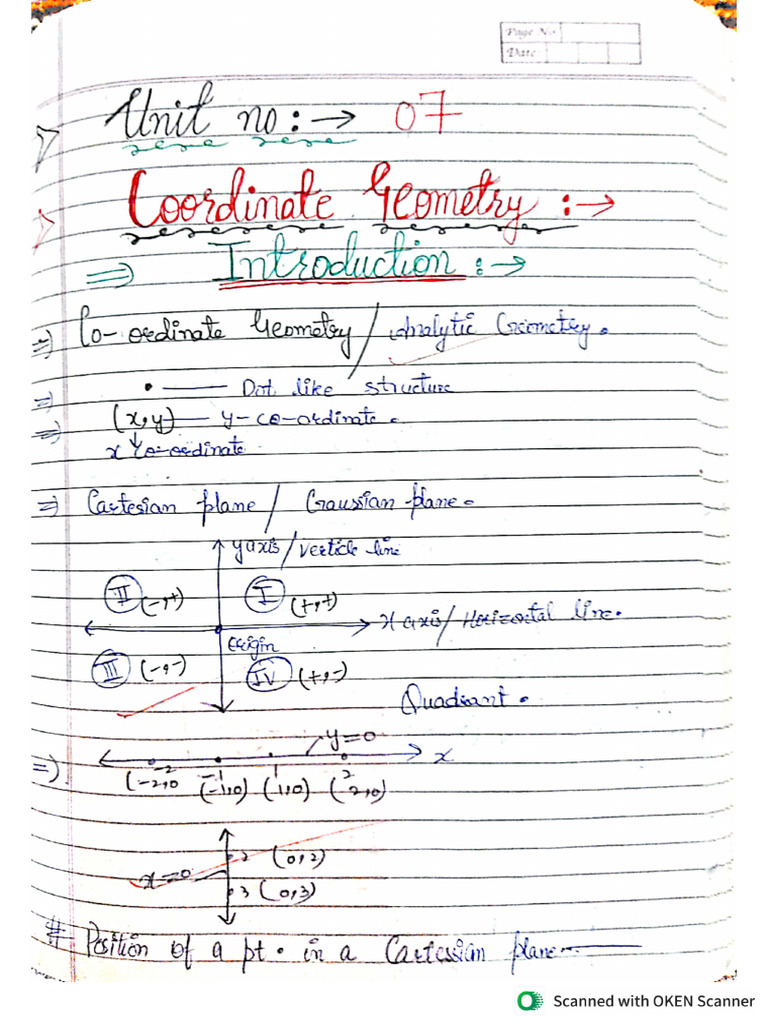 Page No
Date
Unit no :→ 07
Coordinate Geometry :→
⇒ Introduction :→
⇒ Co-ordinate Geometry / Analytic Geometry.
⇒ • —— Dot like structure
⇒ (x,y) — y-co-ordinate.
x co-ordinate
⇒ Cartesian plane / Graussian plane.
y axis / verticle line
II (-,+) I (+,+)
x axis / Horizontal line.
Origin
III (-,-) IV (+,-)
Quadrant.
y=0
⇒ x
-2 -1 1 2
(-2,0 (-1,0) (1,0) (2,0)
2 (0,2)
x=0
3 (0,3)
# Position of a pt. in a Cartesian plane
Scanned with OKEN Scanner